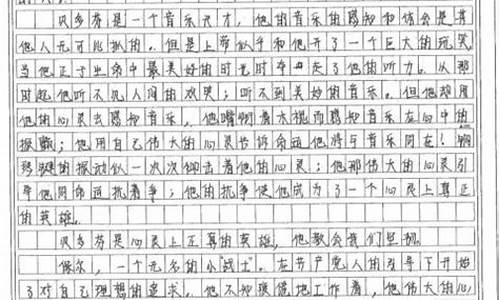 贝多芬是一个音乐天才，他的音乐的感知和体会是其
他人无可比拟的。但是上帝似乎和他开了一个巨大的玩笑，
当他正于生命中最美好的时光时夺走了他的听力。从那
时起他听不见人间的欢笑；听不到美妙的音乐。但他却用
他的心灵去感知音乐，他嘴啣着木棍而感知音乐在心中的
振颤；他用自己伟大的心灵告诉命运他将与音乐同在！钢
琴键的振动似一次次叩击着他的心灵；他那伟大的心灵引
导他同命运抗着争；他的抗争使他成为了一个心灵上真正
的英雄。
贝多芬是心灵上正真的英雄，他教会我们坚韧。
保尔，一个无名的小"战士"。在共产党人的引导下开始
了对自己理想的追求。他不知疲倦地工作着，他伟大的心